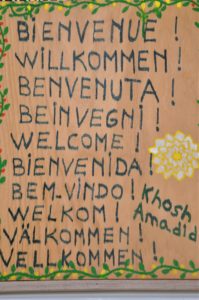 BIENVENUE!
WILLKOMMEN!
BENVENUTA!
BEINVEGNI!
WELCOME!
BIENVENIDA!
BEM-VINDO!
WELKOM!
Khosh
Amadid
VÄLKOMMEN!
VELLKOMMEN!